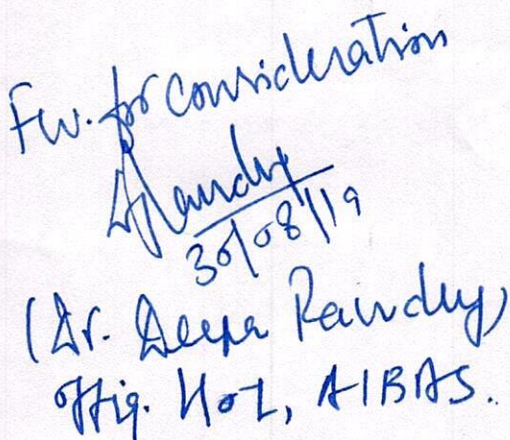 Fw. for consideration
DPandey
30/08/19
(Dr. Deepa Pandey)
Offig. HoI, AIBAS.